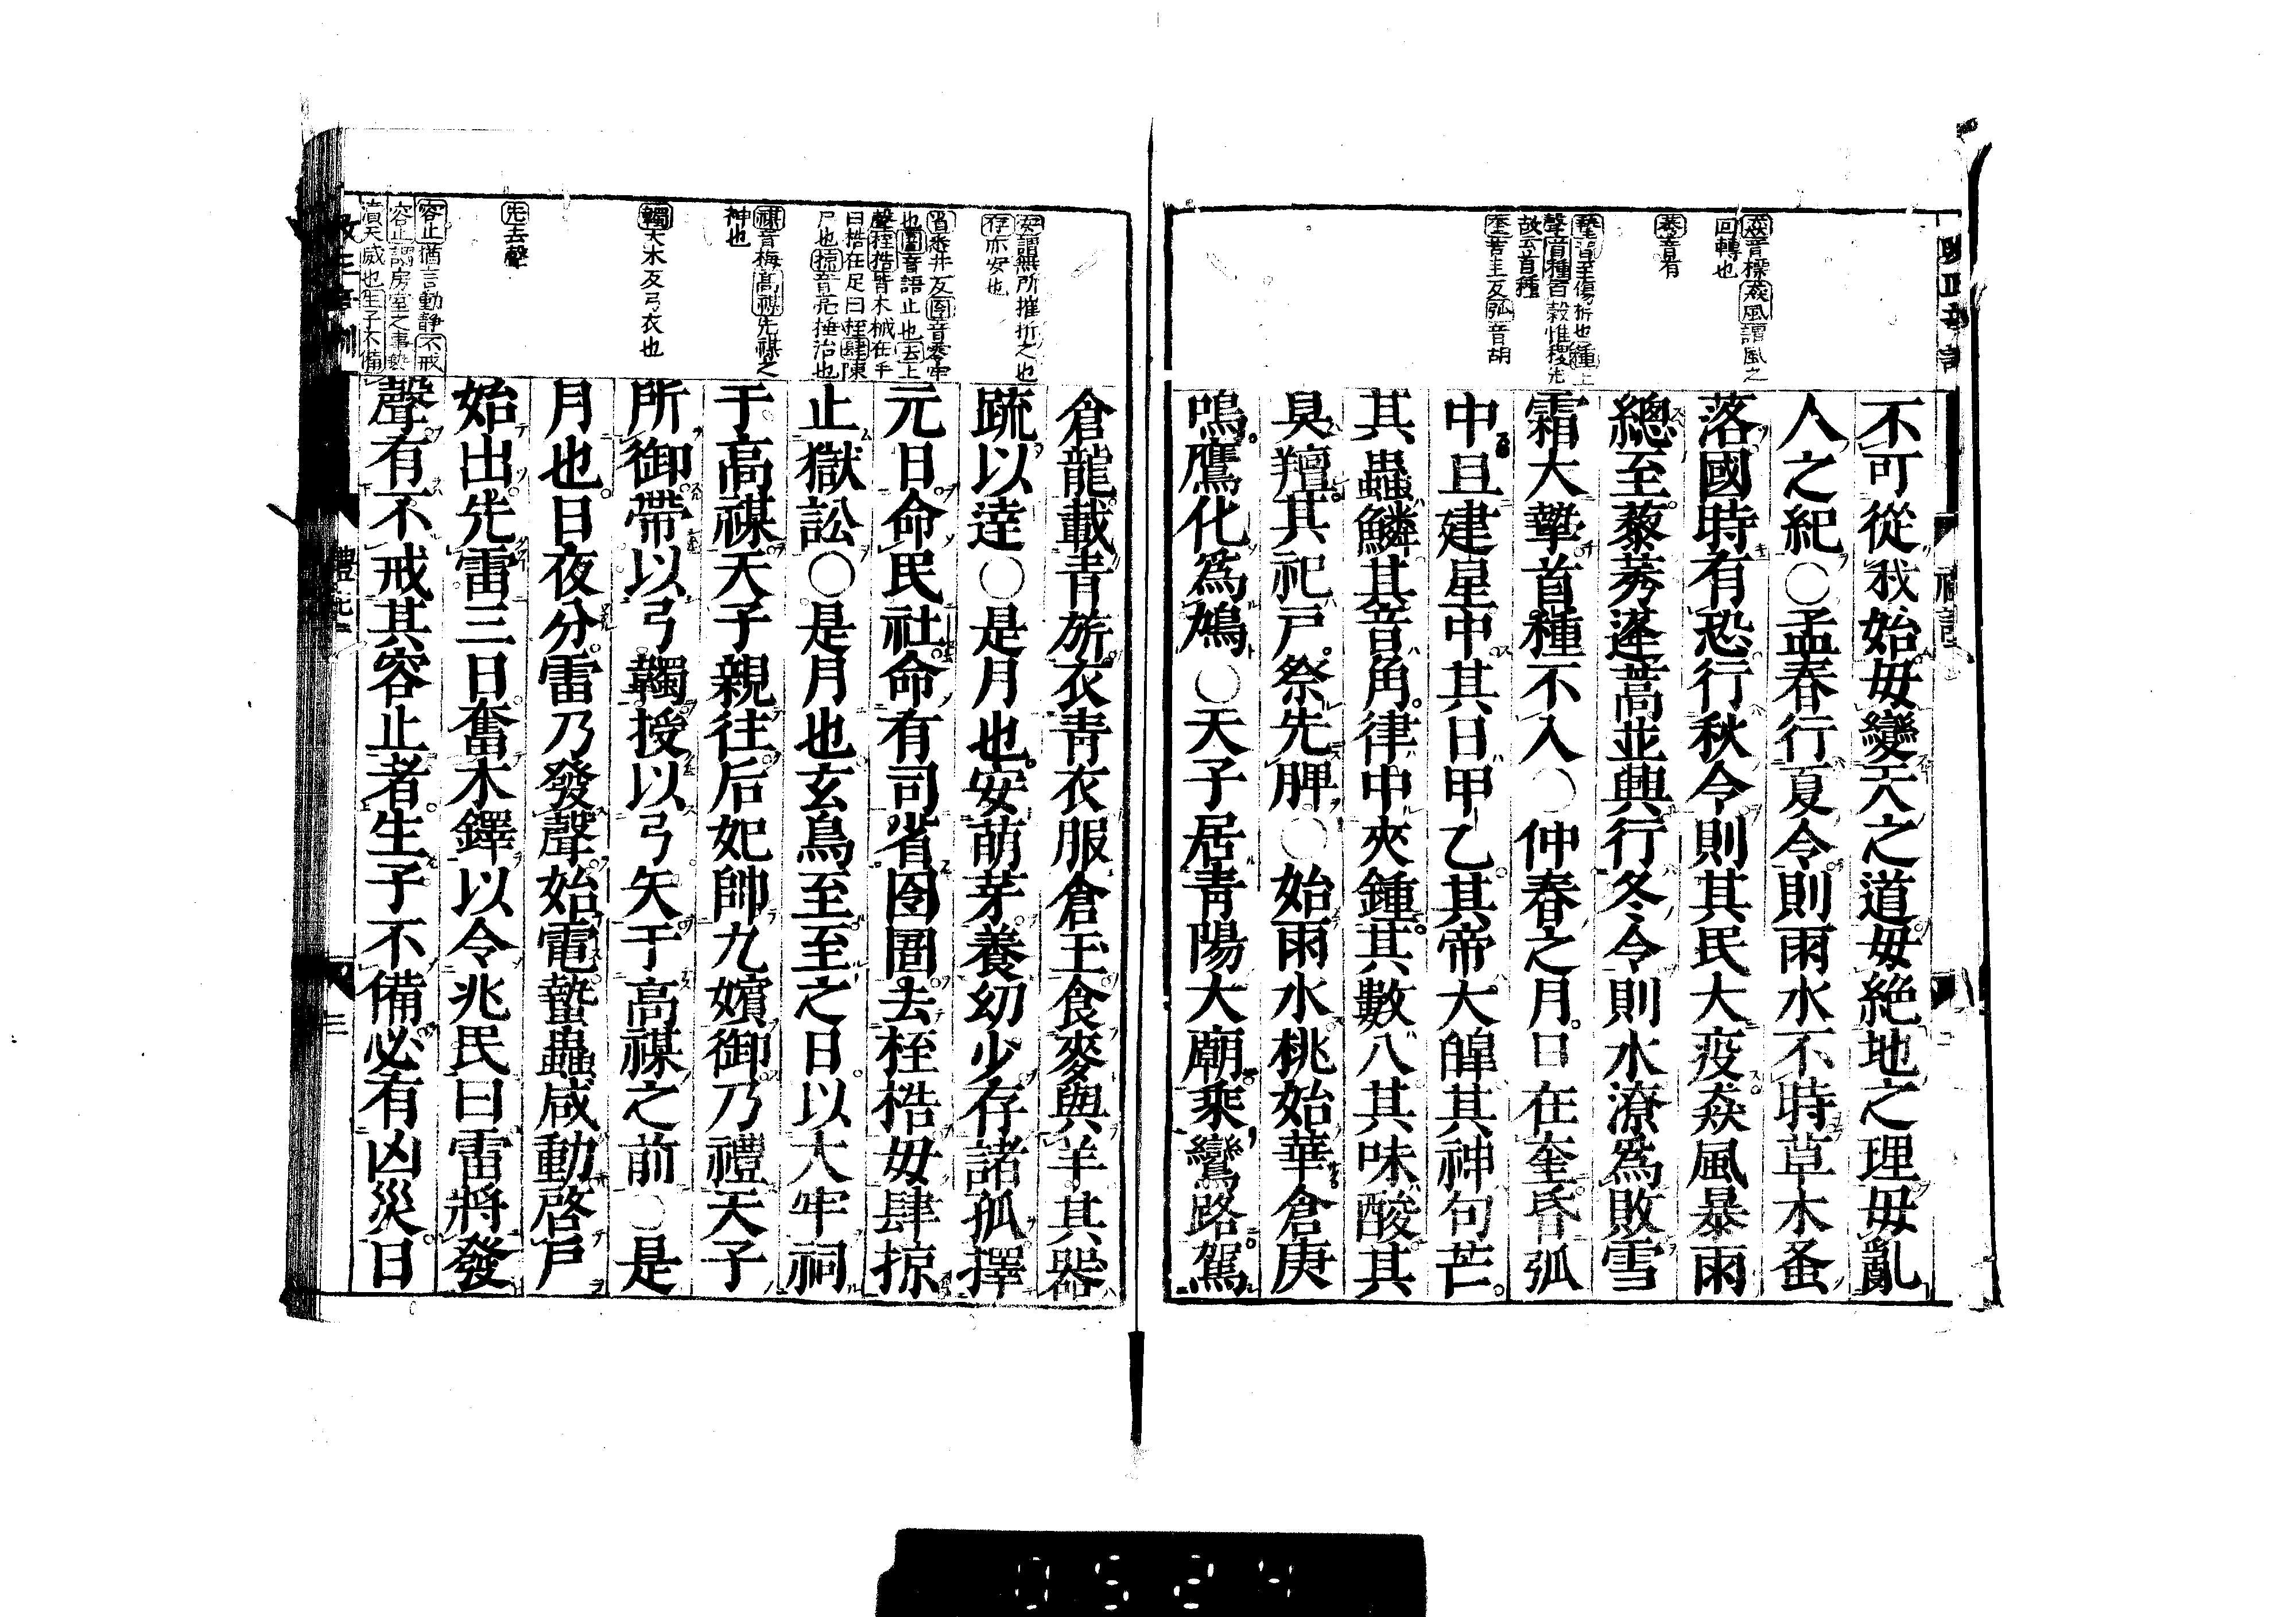 焱音標焱風謂風之
回轉也
莠音有
摯音至傷折也種上
聲首種百穀惟稷先
故云首種
奎苦圭反弧音胡
不可從我始毋變天之道毋絶地之理毋亂
人之紀○孟春行夏令則雨水不時草木蚤
落國時有恐行秋令則其民大疫焱風暴雨
總至藜莠蓬蒿並興行冬令則水潦爲敗雪
霜大摯首種不入○仲春之月日在奎昏弧
中旦建星中其日甲乙其帝大皥其神句芒
其蟲鱗其音角律中夾鍾其數八其味酸其
臭羶其祀戸祭先脾○始雨水桃始華倉庚
鳴鷹化爲鳩○天子居青陽大廟乘鸞路駕
安謂無所摧折之也
存亦安也
省悉井反囹音零牢
也圄音語止也去上
聲桎梏皆木械在手
曰梏在足曰桎肆陳
尸也掠音亮捶治也
禖音梅高禖先禖之
神也
韣大木反弓衣也
先去聲
容止猶言動静不戒
容止謂房室之事褻
瀆天威也生子不備
倉龍載青旂衣青衣服倉玉食麥與羊其器
疏以逹○是月也安萌芽養幼少存諸孤擇
元日命民社命有司省囹圄去桎梏毋肆掠
止獄訟○是月也玄鳥至至之日以大牢祠
于高禖天子親往后妃帥九嬪御乃禮天子
所御帶以弓韣授以弓矢于高禖之前○是
月也日夜分雷乃發聲始電蟄蟲咸動啓戸
始出先雷三日奮木鐸以令兆民曰雷將發
聲有不戒其容止者生子不備必有凶災日
三
0524